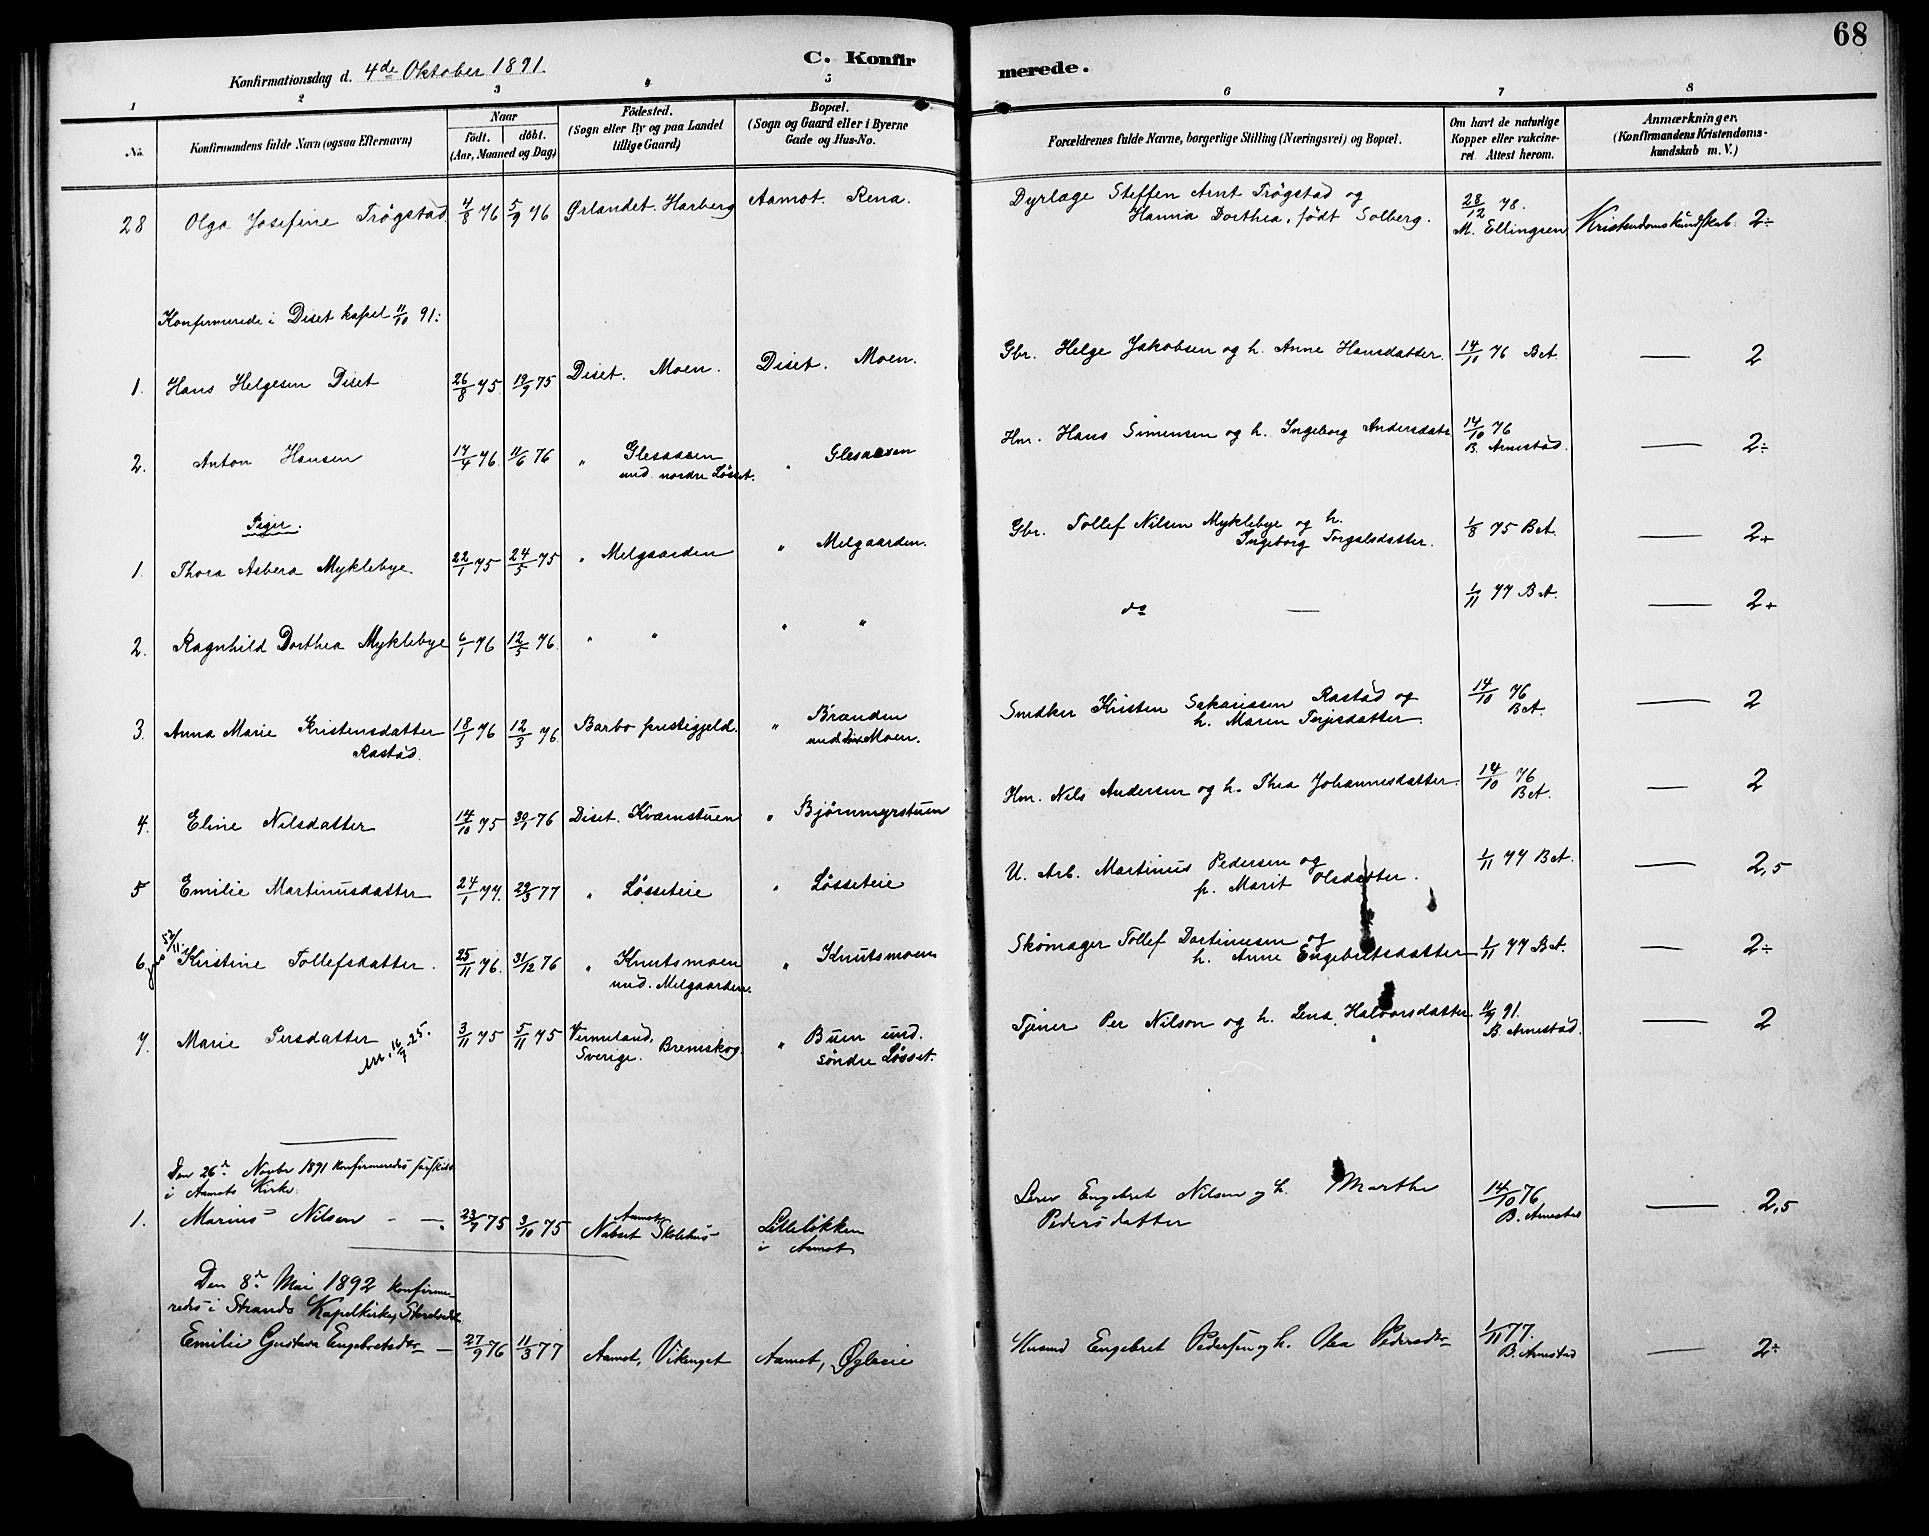 68
C. Konfirmerede.
Konfirmationsdag d. 4de Oktober 1891.
1 2 3 4 5 6 7 8
No.
Konfirmandens fulde Navn (ogsaa Efternavn)
Naar
Födt. döbt.
(Aar, Maaned og Dag)
Födested.
(Sogn eller By og paa Landet
tillige Gaard)
Bopæl.
(Sogn og Gaard eller i Byerne
Gade og Hus-No.
Forældrenes fulde Navne, borgerlige Stilling (Næringsvei) og Bopæl.
Om havt de naturlige
Kopper eller vakcine-
ret. Attest herom.
Anmærkninger.
(Konfirmandens Kristendoms-
kundskab m. V.)
28 Olga Josefine Trøgstad 4/8 76 5/9 76 Ørlandet. Harberg Aamot. Rena. Dyrlæge Steffen Arnt Trøgstad og
Hanna Dorthea, født Solberg. 28/12 78.
M. Ellingsen Kristendomskundskab 2÷
Konfirmerede i Diset kapel 11/10 91:
1. Hans Helgesen Diset 26/8 75 19/9 75 Diset. Moen. Diset. Moen. Gbr. Helge Jakobsen og h. Anne Hansdatter. 14/11 76 BA. — 2
2. Anton Hansen 17/4 76 11/6 76 " Glesaasen
und. nordre Løsset. " Glesaasen Hm. Hans Simensen og h. Ingeborg Andersdatr 14/10 76
B. Arnestad. — 2÷
Piger.
1. Thora Asbera Myklebye 22/1 75 24/5 75 " Melgaarden " Melgaarden. Gbr. Tollef Nilsen Myklebye og h.
Ingeborg Torgalsdatter. 1/8 75 BA. — 2+
2. Ragnhild Dorthea Myklebye 6/1 76 12/3 76 " " " " do — 1/11 77 BA. — 2+
3. Anna Marie Kristensdatter
Rastad. 18/1 76 12/3 76 Barbo prestegjeld. " Brænden
und. Moen. Snedker Kristen Sakariassen Rastad og
h. Maren Terjesdatter. 14/10 76
BA. — 2
4. Eline Nilsdatter 14/10 75 30/1 76 Diset. Kværnstuen " Bjørnmyrstuen Hm. Nils Andersen og h. Thea Johannesdatter. 14/10 76
BA. — 2
5 Emilie Martinusdatter 24/1 77. 29/3 77 " Løsseteie " Løsseteie U. Arb. Martinus Pedersen og
p. Marit Olsdatter. 1/11 77 BA. — 2,5
6 Kristine Tollefsdatter. 25/11 76. 31/12 76 " Knutsmoen
und. Melgaarden. " Knutsmoen Skomager Tollef Dortinusen og
h. Anne Engebretsdatter 1/11 77 BA. — 2÷
7. Marie Persdatter 3/11 75 5/11 75 Vermeland,
Sverige. Bremskog " Buen und.
søndre Løsset. Tjener Per Nilson og h. Lena Halvorsdatter 11/9 91.
B. Arnestad. — 2
16/7 25.
Den 26de Novbr 1891 konfirmeredes særskilt
i Aamots Kirke:
1. Marius Nilsen — 23/9 75 3/10 75 Aamot
Nabset Skolehus Lilleløkken
i Aamot Lærer Engebret Nilsen og h. Marthe
Pedersdatter 14/10 76
B. Arnestad — 2,5
Den 8de Mai 1892 konfirme-
redes i Strands Kapelkirke, Storelvedal
Emilie Gustava Engebretsdtr — 27/9 76 11/3 77 Aamot, Vikenget Aamot, Ygleeie Husmd Engebret Pedersen og h. Olea Pedersdtr 1/11 77.
B. Arnestad — 2÷